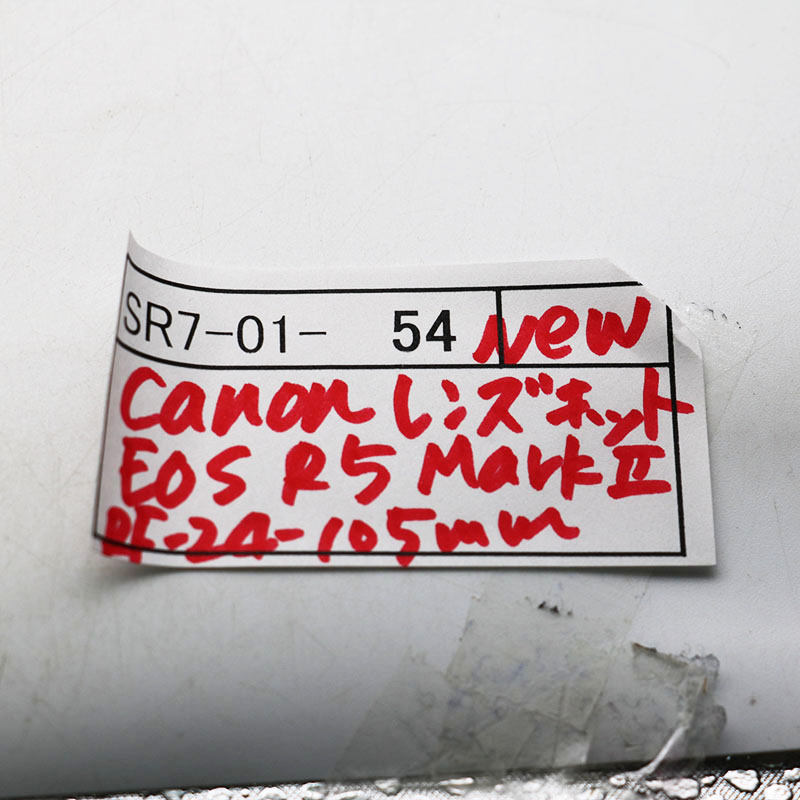 SR7-01- 54 New
Canon レンズホット
EOS R5 Mark II
RF-24-105mm